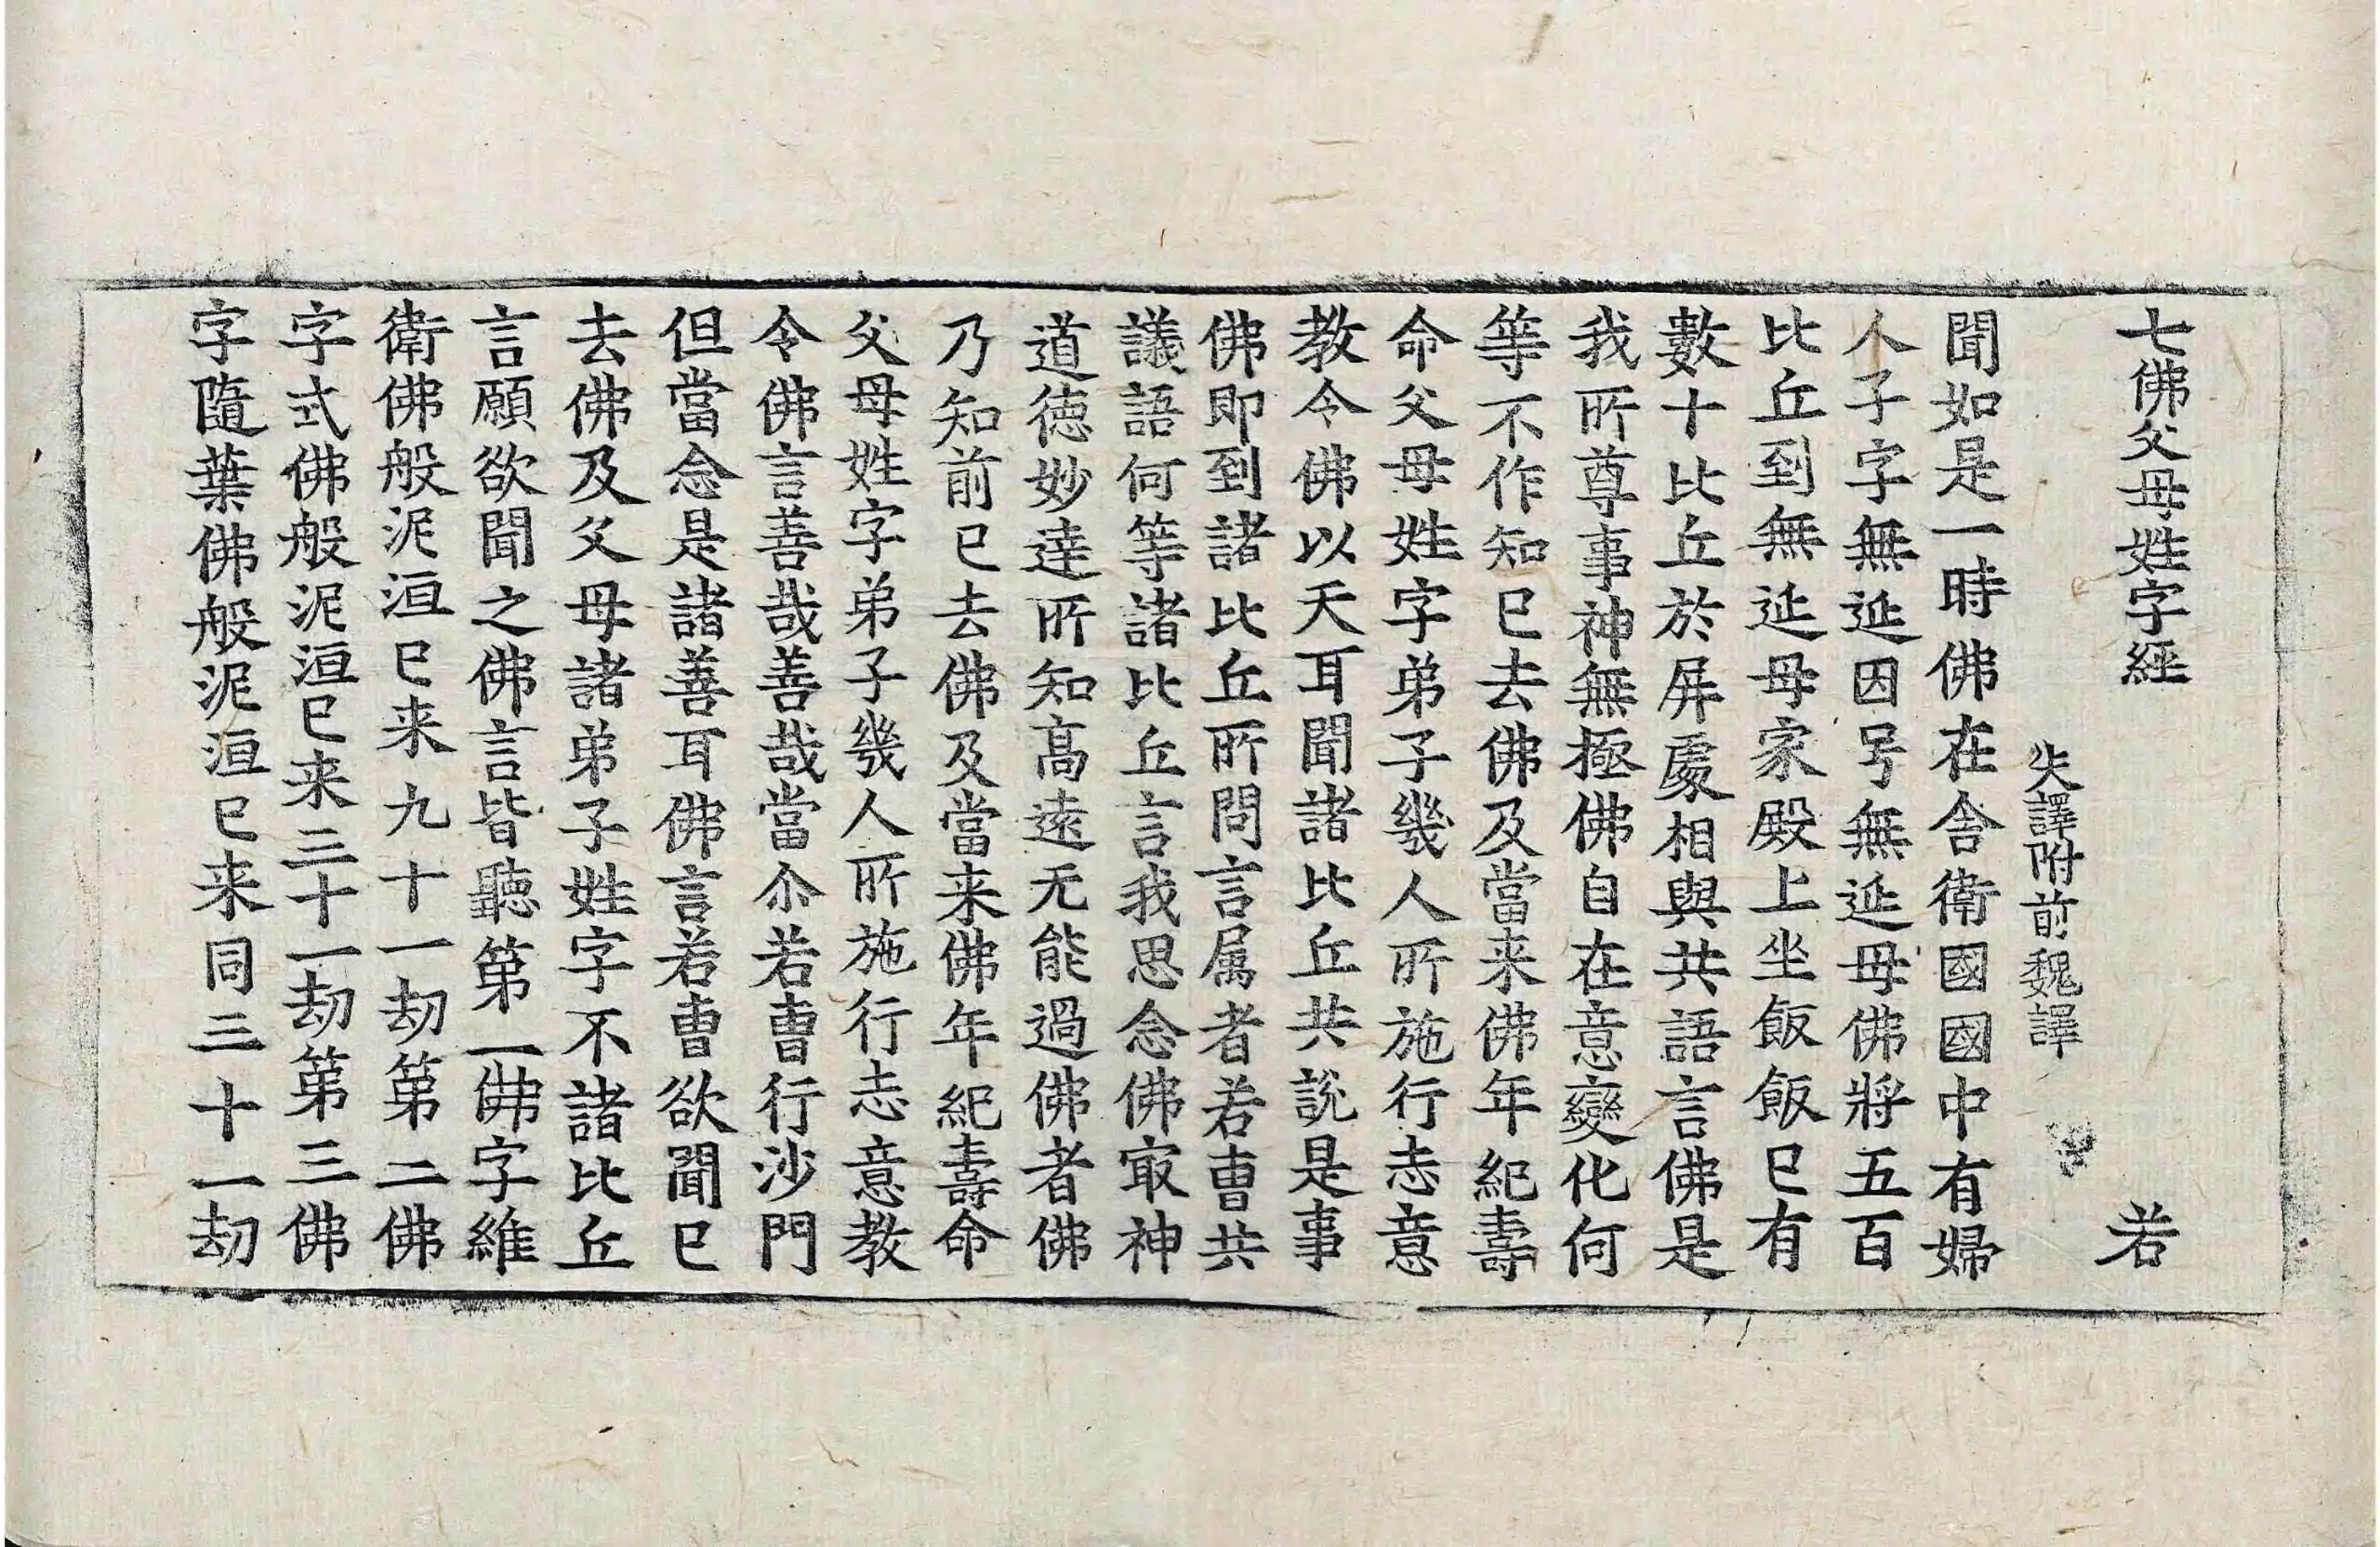 七佛父母姓字經 若
失譯附前魏譯
聞如是一時佛在舍衛國國中有婦
人子字無延因号無延母佛將五百
比丘到無延母家殿上坐飯飯巳有
數十比丘於屏處相與共語言佛是
我所尊事神無極佛自在意變化何
等不作知巳去佛及當来佛年紀壽
命父母姓字弟子幾人所施行志意
教令佛以天耳聞諸比丘共說是事
佛即到諸比丘所問言属者若曺共
議語何等諸比丘言我思念佛㝡神
道德妙達所知髙遠无能過佛者佛
乃知前巳去佛及當来佛年紀壽命
父母姓字弟子幾人所施行志意教
令佛言善哉善哉當尒若曺行沙門
但當念是諸善耳佛言若曺欲聞巳
去佛及父母諸弟子姓字不諸比丘
言願欲聞之佛言皆聽第一佛字維
衛佛般泥洹巳来九十一劫第二佛
字式佛般泥洹巳来三十一劫第三佛
字隨葉佛般泥洹巳来同三十一劫